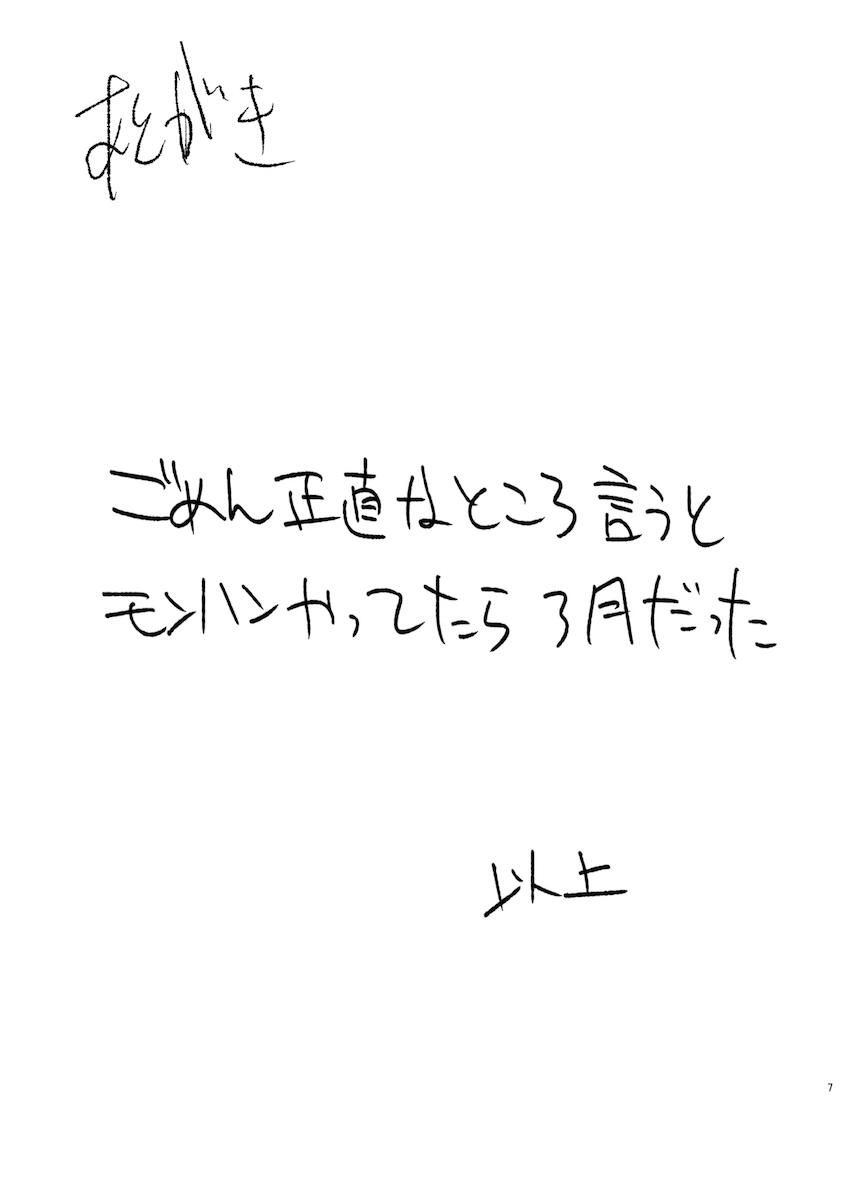 あとがき
ごめん正直なところ言うと
モンハンやってたら3月だった
以上
7